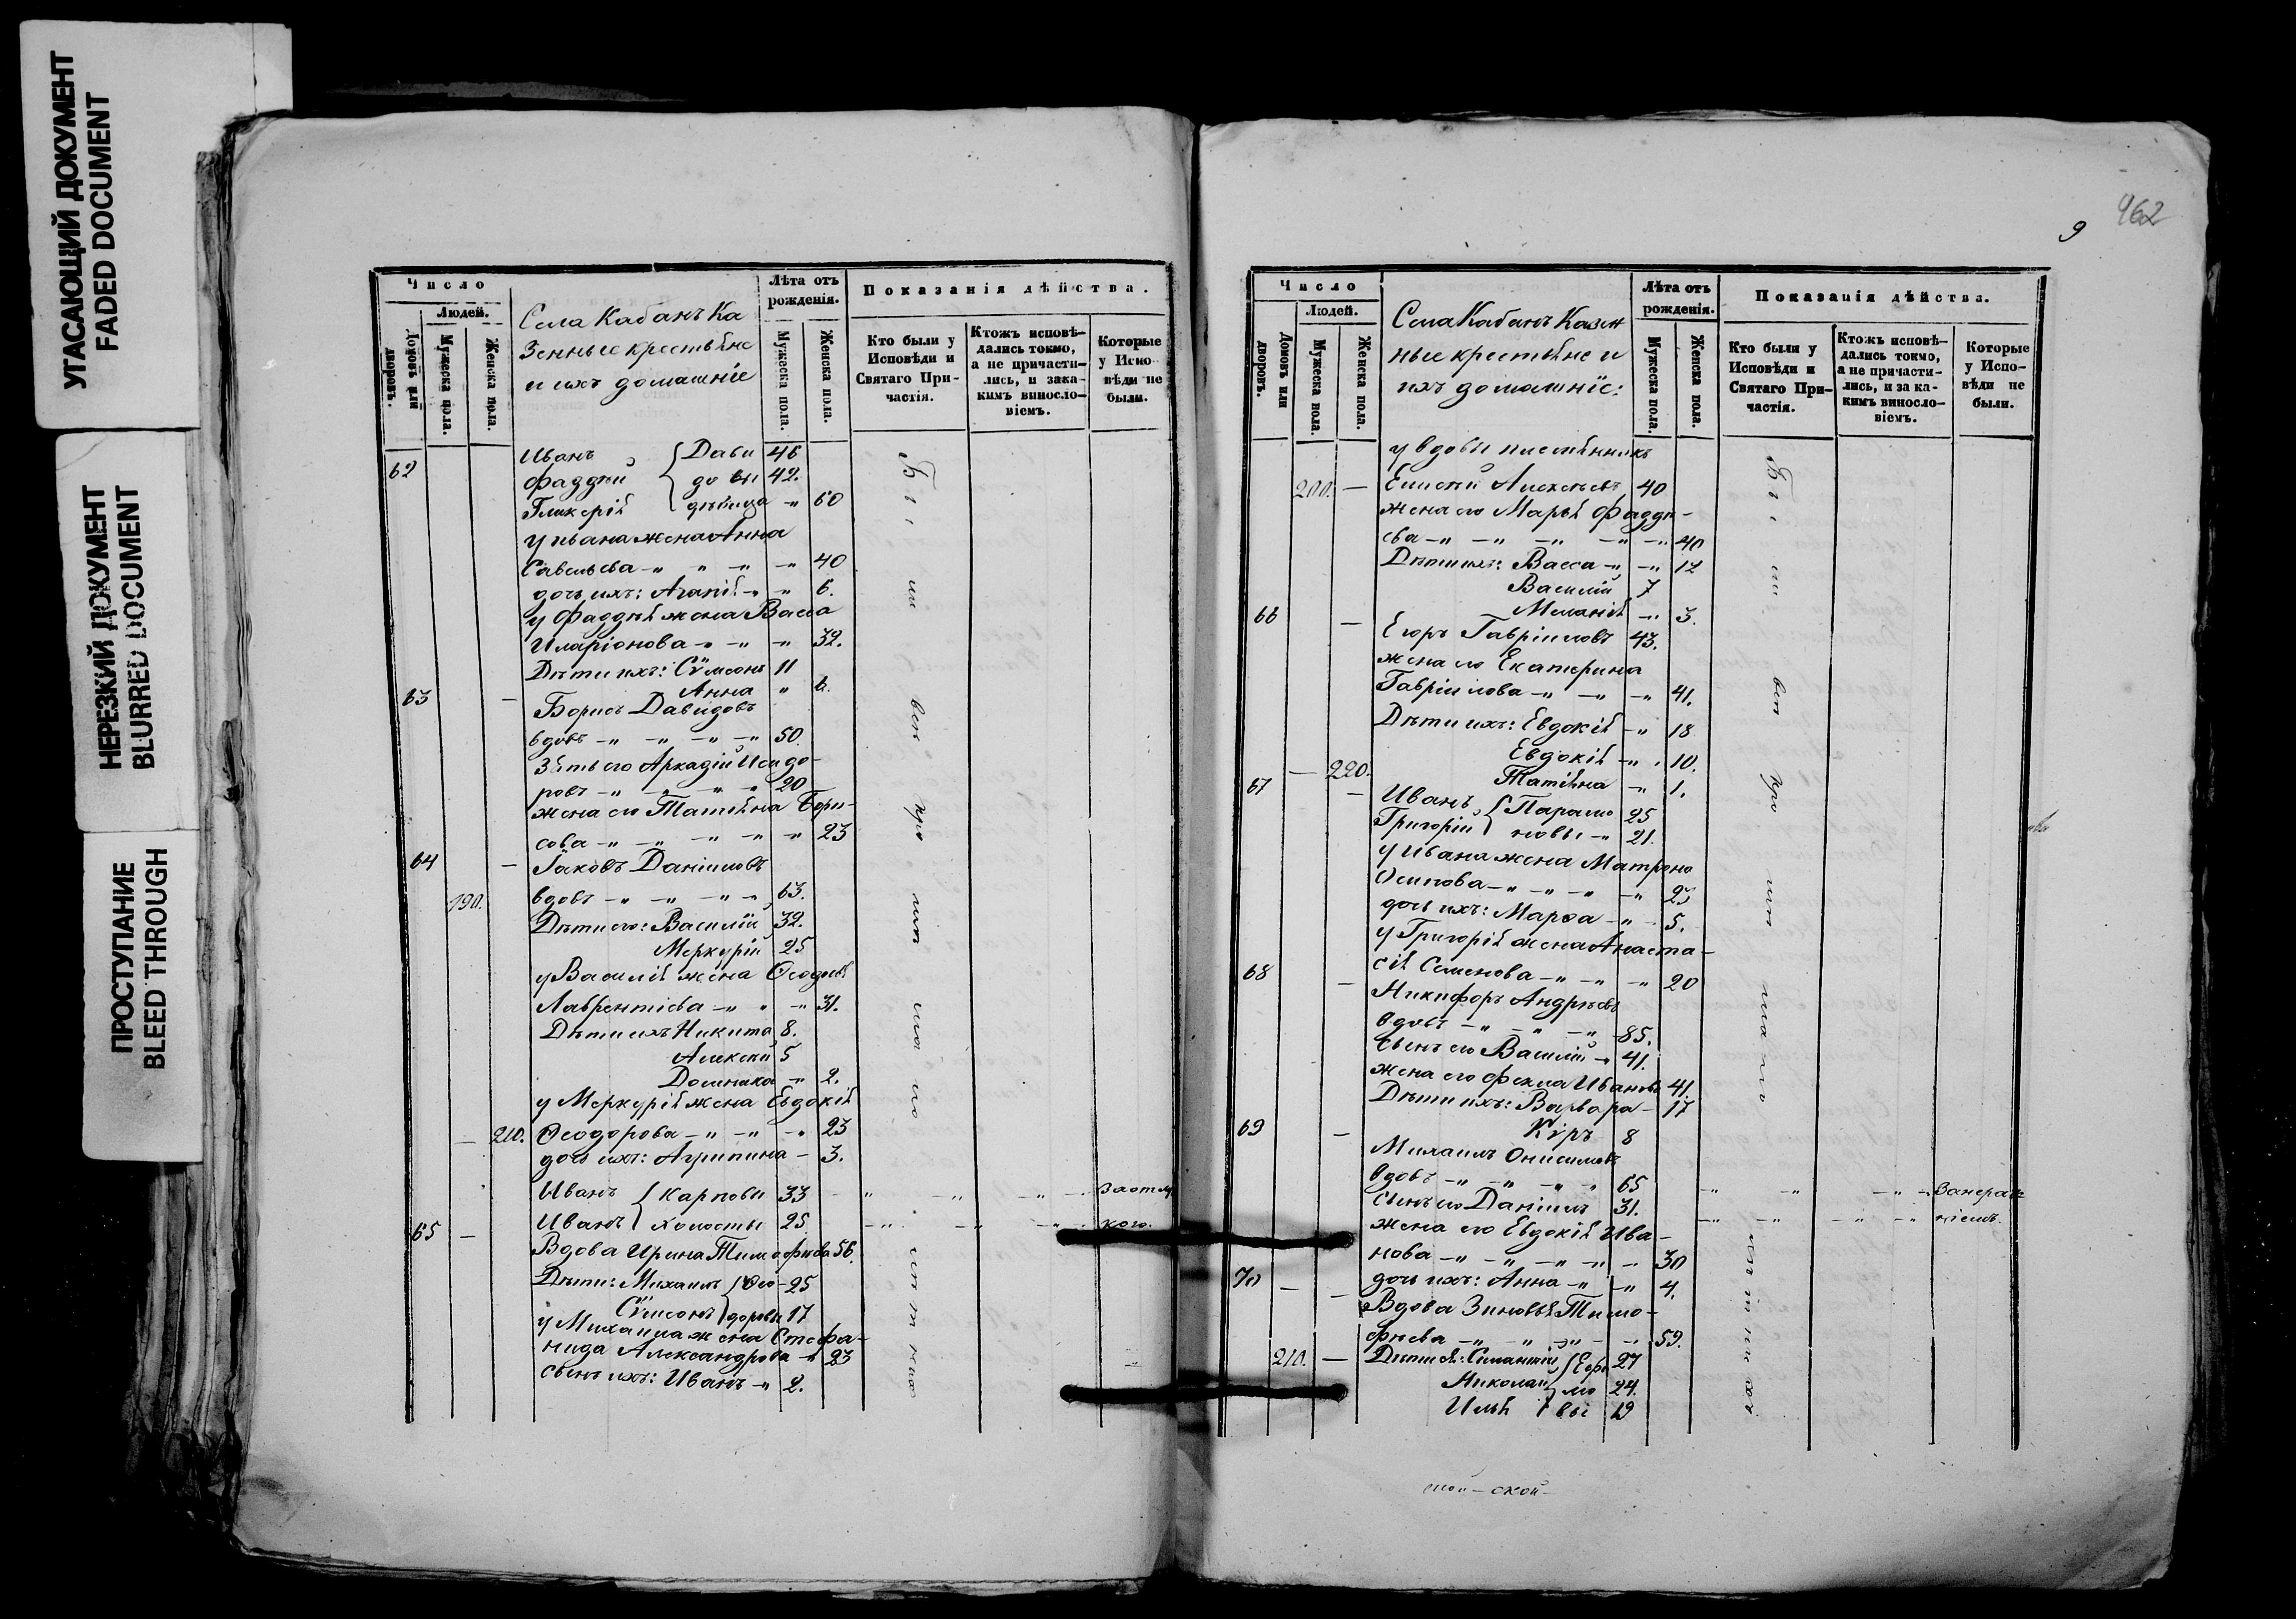 УГАСАЮЩИЙ ДОКУМЕНТ
FADED DOCUMENT
НЕРЕЗКИЙ ДОКУМЕНТ
BLURRED DOCUMENT
ПРОСТУПАНИЕ
BLEED THROUGH
Число
Людей.
Домовъ или дворовъ.
Мужеска пола.
Женска пола.
Села Кабанъ Ка
зенные крестьяне
и ихъ домашніе
Лѣта отъ рожденія.
Мужеска пола.
Женска пола.
Показанія дѣйства.
Кто были у Исповѣди и Святаго Причастія.
Ктожъ исповѣдались токмо, а не причастились, и за какимъ винословіемъ.
Которые у Исповѣди не были.
62 Иванъ { Дави 46
Фаддей { до вы 42.
Гликерія { дѣвица -"- 60
у Ивана жена Анна
Савельева -"- " -"- -"- 40
дочь ихъ: Агапія -"- " 6.
у Фаддея жена Васса
Иларіонова -"- -"- " 32.
Дѣти ихъ: Сѵмеонъ 11
Анна " 6.
63 — Борисъ Давидовъ
вдовъ -"- -"- -"- -"- 50.
Зять его Аркадій Исидо-
ровъ -"- " " " 20
жена его Татіяна Бори-
сова -"- -"- -"- -"- -"- 23
64 — Іаковъ Даніиловъ
190. вдовъ -"- -"- -"- -"- 63.
Дѣти его: Василій 32.
Меркурій 25
у Василія жена Ѳеодосія
Лаврентіева -"- " -"- 31.
Дѣти ихъ Никита 8.
Алексей 5
Домника -"- 2.
у Меркурія жена Евдокія
— 210. Ѳеодорова -"- -"- -"- 23
дочь ихъ: Агрипина - 3.
Иванъ { Карповы 33 за отлу
Иванъ { холосты 25 кого.
65 — Вдова Ирина Тимофеева 56.
Дѣти: Михаилъ { Ѳео- 25
Сѵмеонъ { доровы 17
у Михаила жена Стефа-
нида Александрова -"- 23
сынъ ихъ: Иванъ -"- 2.
962
9
Число
Людей.
Домовъ или дворовъ.
Мужеска пола.
Женска пола.
Села Кабанъ Казен
ные крестьяне и
ихъ домашніе:
Лѣта отъ рожденія.
Мужеска пола.
Женска пола.
Показанія дѣйства.
Кто были у Исповѣди и Святаго Причастія.
Ктожъ исповѣдались токмо, а не причастились, и за какимъ винословіемъ.
Которые у Исповѣди не были.
у вдовы племянникъ
200. — Елисей Алексѣевъ 40
жена его Марья Фадде-
ева -"- -"- -"- -"- -"- 40
Дѣти ихъ: Васса -"- -"- 12
Василій 7
Меланія -"- 3.
66 — Егоръ Гавріиловъ 43.
жена его Екатерина
Гавріилова -"- -"- -"- 41.
Дѣти ихъ: Евдокія -"- 18
Евдокія -"- 10.
— 220. Татіяна -"- 1.
67 — Иванъ { Парамо 25
Григорій { новы -"- 21.
у Ивана жена Матрона
Осипова -"- -"- -"- -"- 23
дочь ихъ: Марѳа -"- 5.
у Григорія жена Анаста-
сія Семенова -"- -"- -"- 20
68 — Никифоръ Андреевъ
вдовъ -"- -"- -"- 85.
сынъ его Василій -"- 41.
жена его Фекла Иванова 41.
Дѣти ихъ: Варвара - 17
Кіръ 8
69 — Михаилъ Онисимовъ
вдовъ -"- -"- " " 65
сынъ его Даніилъ 31.
жена его Евдокія Ива-
нова -"- -"- " -"- -"- 30
дочь ихъ: Анна -"- -"- 4.
70 — Вдова Зиновья Тимо-
феева -"- " -"- - 59.
210. — Дѣти ея: { Ефи 27
Николай { мо 24.
Илья { вы 19